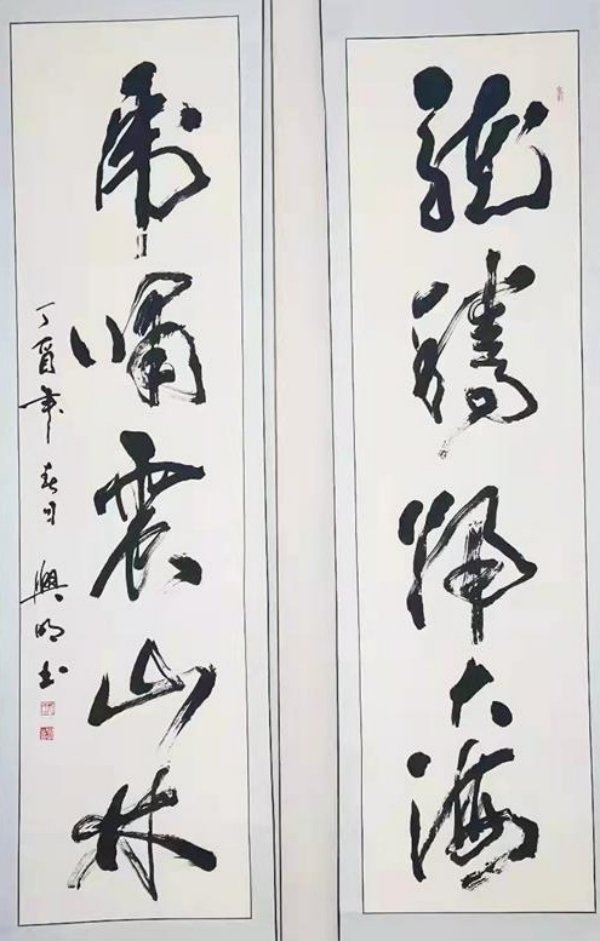 龍騰歸大海
虎嘯震山林
丁酉年春月興明書